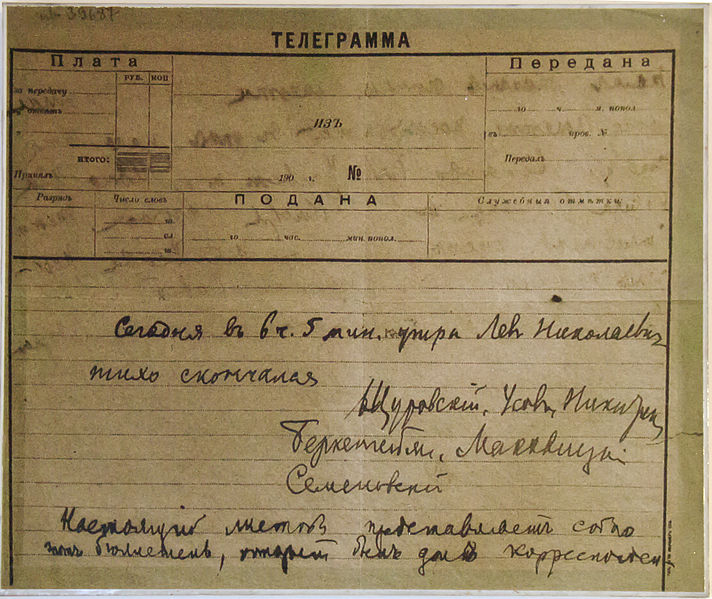 39687
ТЕЛЕГРАММА
Плата
РУБ. КОП
за передачу
"
итого:
Принялъ
ИЗЪ
190 г. №
Передана
го ч. м. попол
въ пров. №
Передалъ
Разрядъ
Число словъ
ПОДАНА
го час. мин. попол.
Служебныя отмѣтки:
Сегодня въ 6 ч. 5 мин. утра Левъ Николаевич
тихо скончался
Щуровскій, Усовъ, Никитин
Беркенгейм, Маковицкій
Семеновскій
Настоящій листокъ представляетъ собою
тотъ бюллетень, который былъ данъ корреспонден